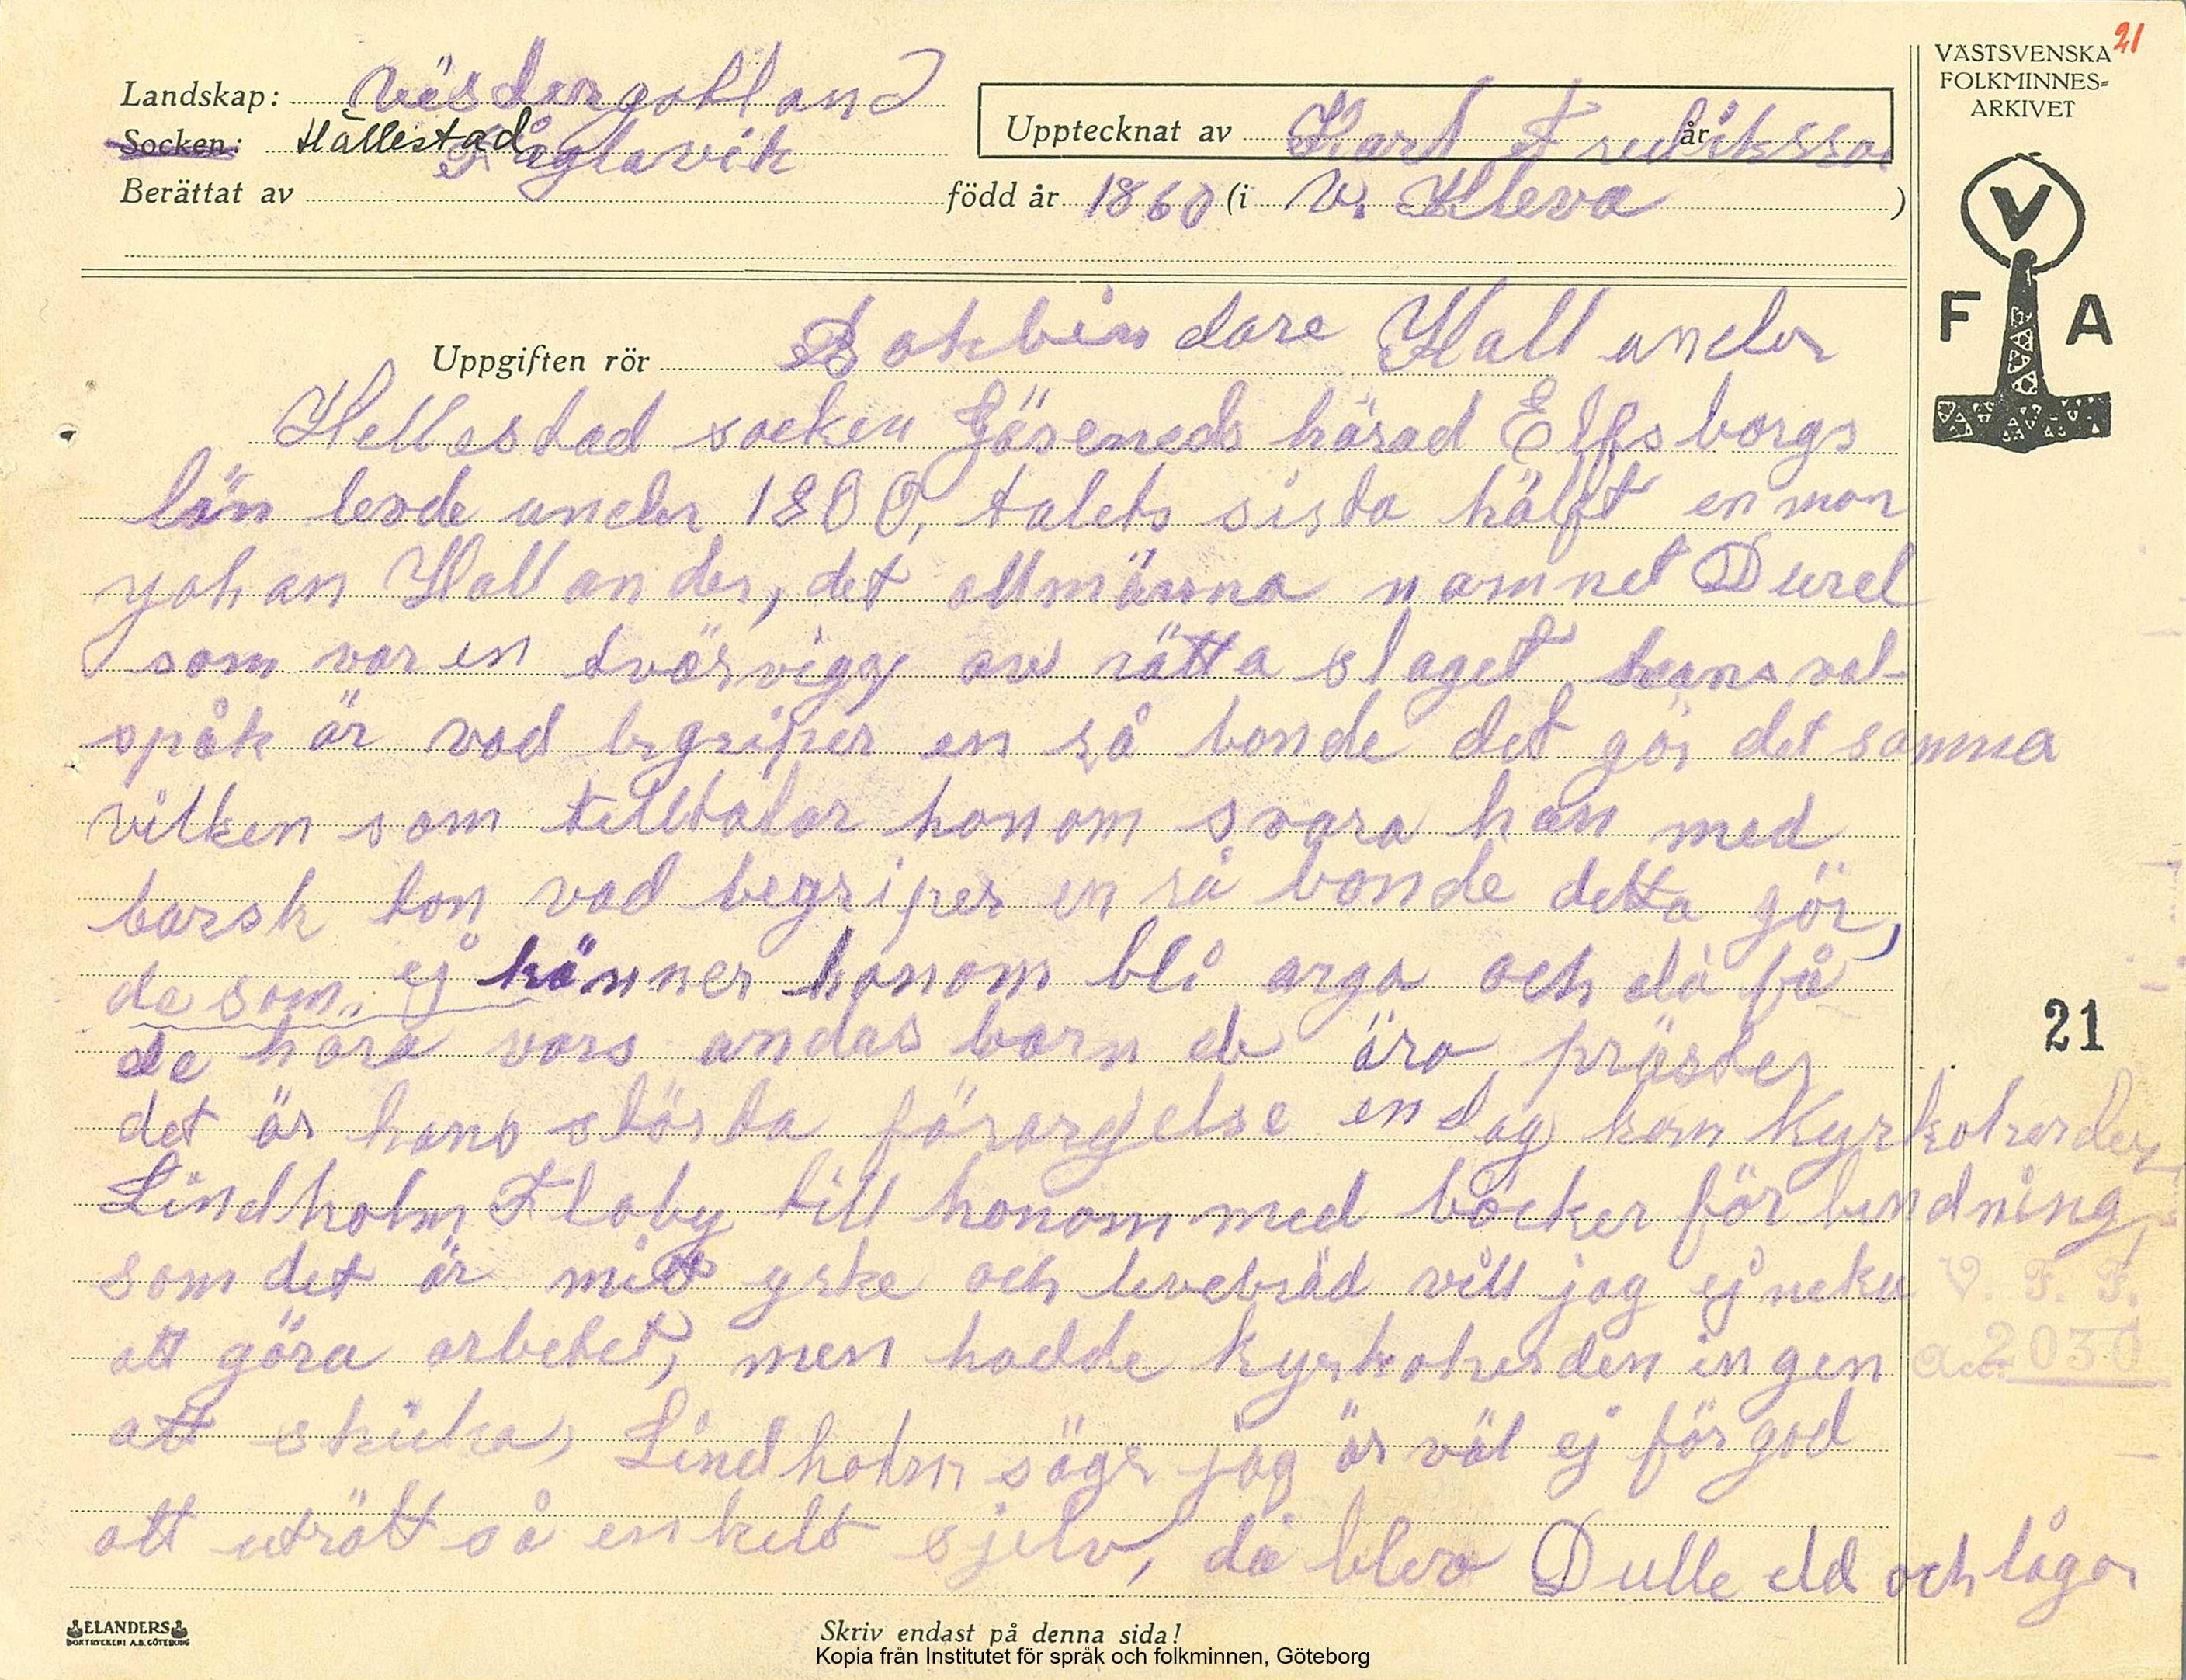 21
VÄSTSVENSKA
FOLKMINNES=
ARKIVET
Landskap: Västergotland
Socken: Hällestad
Fåglavik
Upptecknat av Karl Fredriksson
år
Berättat av född år 1860 (i V. Kleva )
V
F A
Uppgiften rör Bokbindare Hallander
Hellestad socken Gäseneds härad Elfsborgs
län levde under 1800, talets sista hälft en man
yohan Hallander, det allmänna namnet Durel
som var en tvärvigg av rätta slaget hans val-
språk är vad bgriper en så bonde det gör det samma
vilken som tilltalar honom svara han med
barsk ton vad begriper en så bonde detta gör,
de som ej känner honom bli arga och då få
de höra vars andas barn de äro präster
det är hans största förargelse en dag kom Kyrkoherden
Lindholm Floby till honom med böcker för bindning,
som det är mitt yrke och levebröd vill jag ej neka
att göra arbetet, men hadde kyrkoherden ingen
att skicka, Lindholm säger jag är väl ej för god
att uträtt så enkelt sjelv, då blev Dulle eld och lågor
21
V. F. F.
Acc. 2030
ELANDERS
BOKTRYCKERI A.B. GÖTEBORG
Skriv endast på denna sida!
Kopia från Institutet för språk och folkminnen, Göteborg